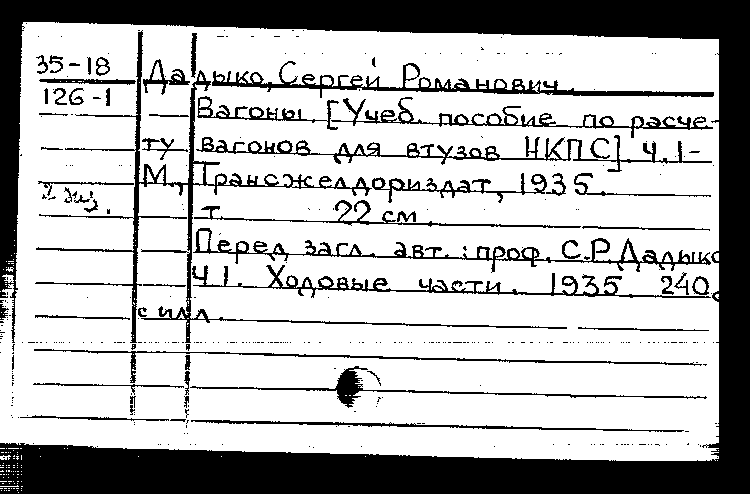 35-18
Дадыко, Сергей Романович.
126-1
Вагоны. [Учеб. пособие по расче-
ту вагонов для втузов НКПС]. Ч.1-
М., Трансжелдориздат, 1935.
2 экз.
т. 22 см.
Перед загл. авт.: проф. С.Р. Дадыко
Ч.1. Ходовые части. 1935. 240
с илл.